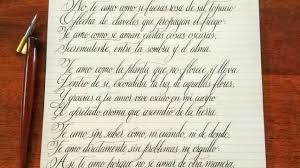 No te amo como si fueras rosa de sal, topacio
O flecha de claveles que propagan el fuego:
Te amo como se aman ciertas cosas oscuras,
Secretamente, entre la sombra y el alma.
Te amo como la planta que no florece y lleva
Dentro de sí, escondida, la luz de aquellas flores,
Y gracias a tu amor vive oscuro en mi cuerpo
El apretado aroma que ascendió de la tierra.
Te amo sin saber cómo, ni cuándo, ni de dónde,
Te amo directamente sin problemas ni orgullo:
Así te amo porque no sé amar de otra manera,